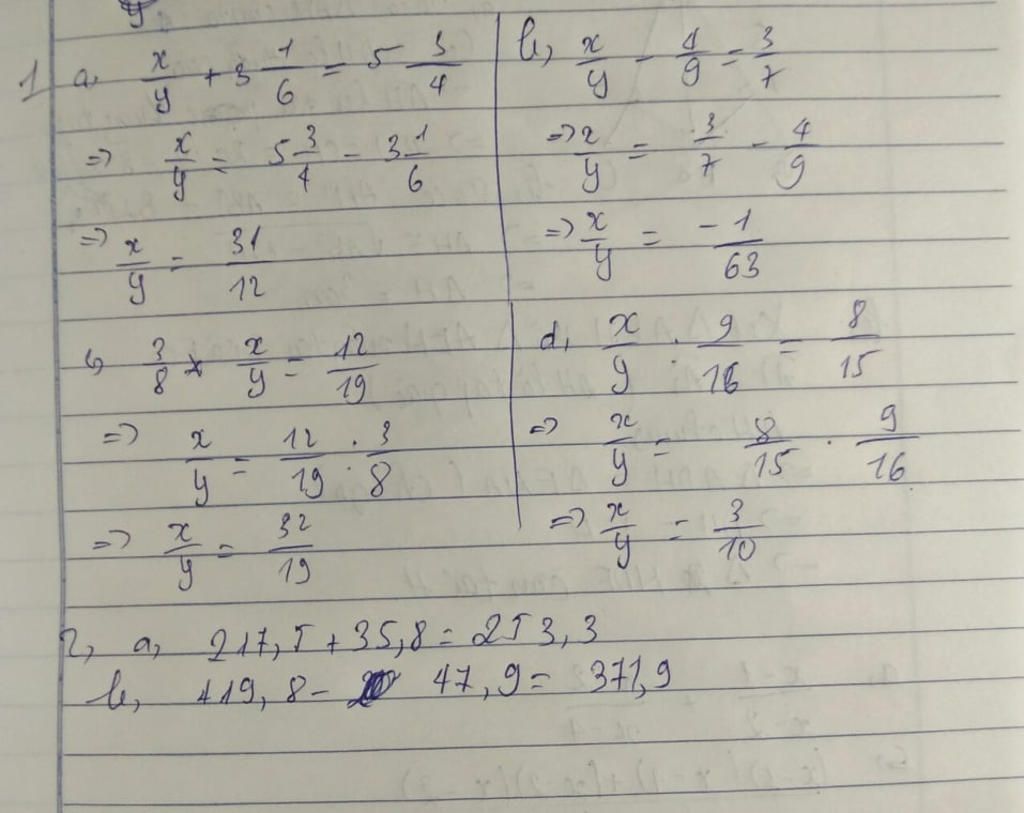 1 a, x/y + 3 1/6 = 5 3/4
=> x/y = 5 3/4 - 3 1/6
=> x/y = 31/12
b, x/y - 4/9 = 3/7
=> x/y = 3/7 - 4/9
=> x/y = -1/63
c, 3/8 x x/y = 12/19
=> x/y = 12/19 : 3/8
=> x/y = 32/19
d, x/y : 9/16 = 8/15
=> x/y = 8/15 . 9/16
=> x/y = 3/10
2, a, 217,5 + 35,8 = 253,3
b, 419,8 - 47,9 = 371,9